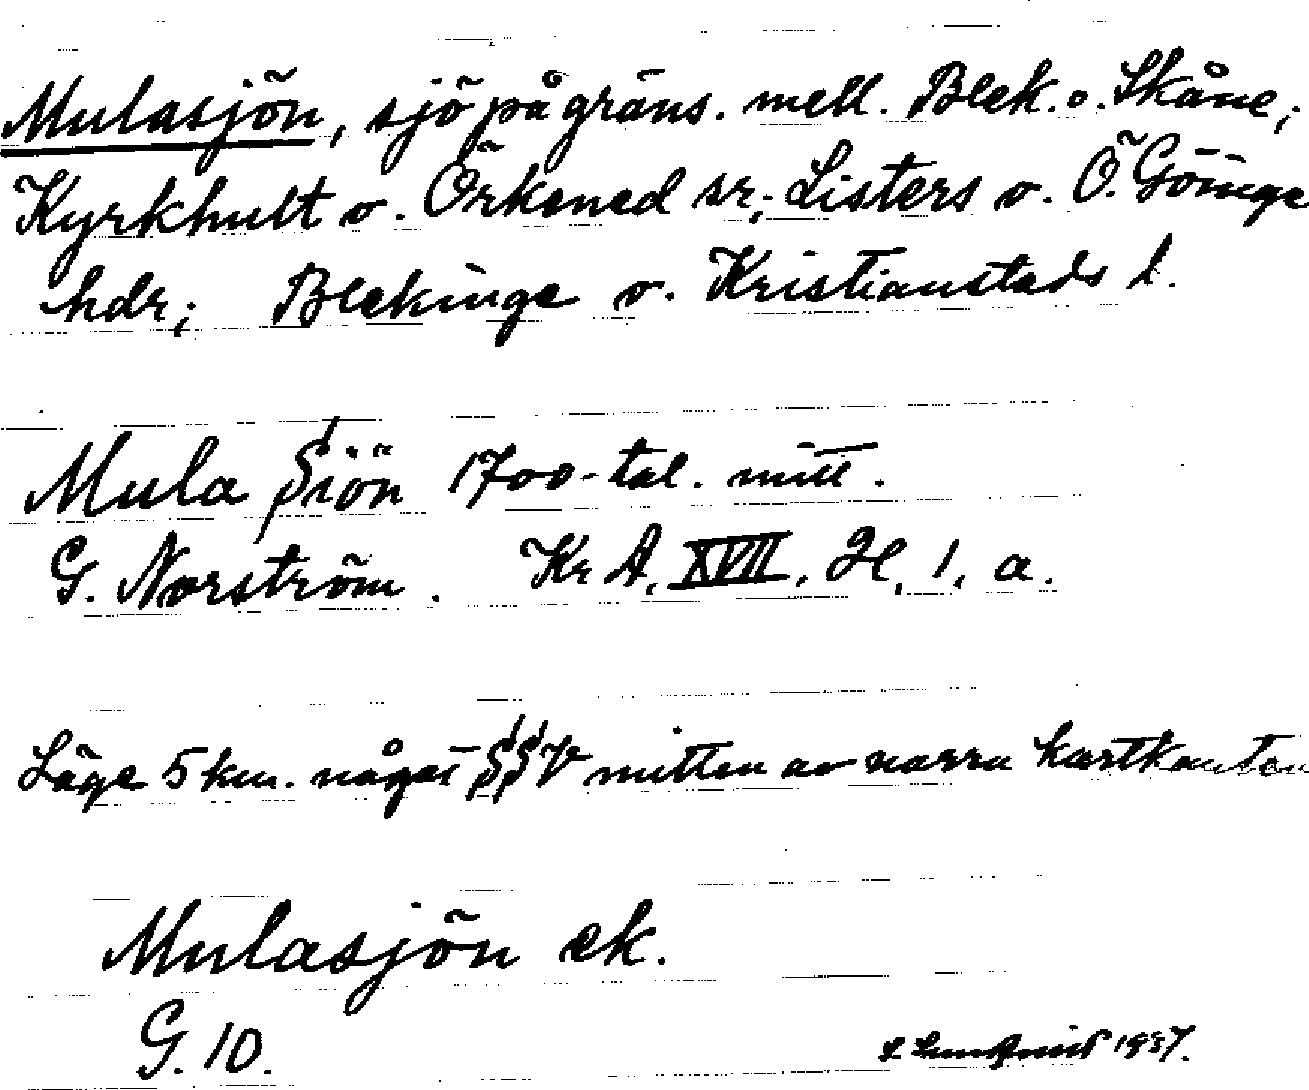 Mulasjön, sjö på gräns. mell. Blek. o. Skåne;
Kyrkhult o. Örkened sr; Listers o. Ö. Göinge
hdr; Blekinge o. Kristianstads l.
Mula Siön 1700-tal. mitt.
G. Norström. Kr A, XVII, H, 1, a.
Läge 5 km. något SSV mitten av norra kartkanten
Mulasjön ek.
G. 10.
1937.